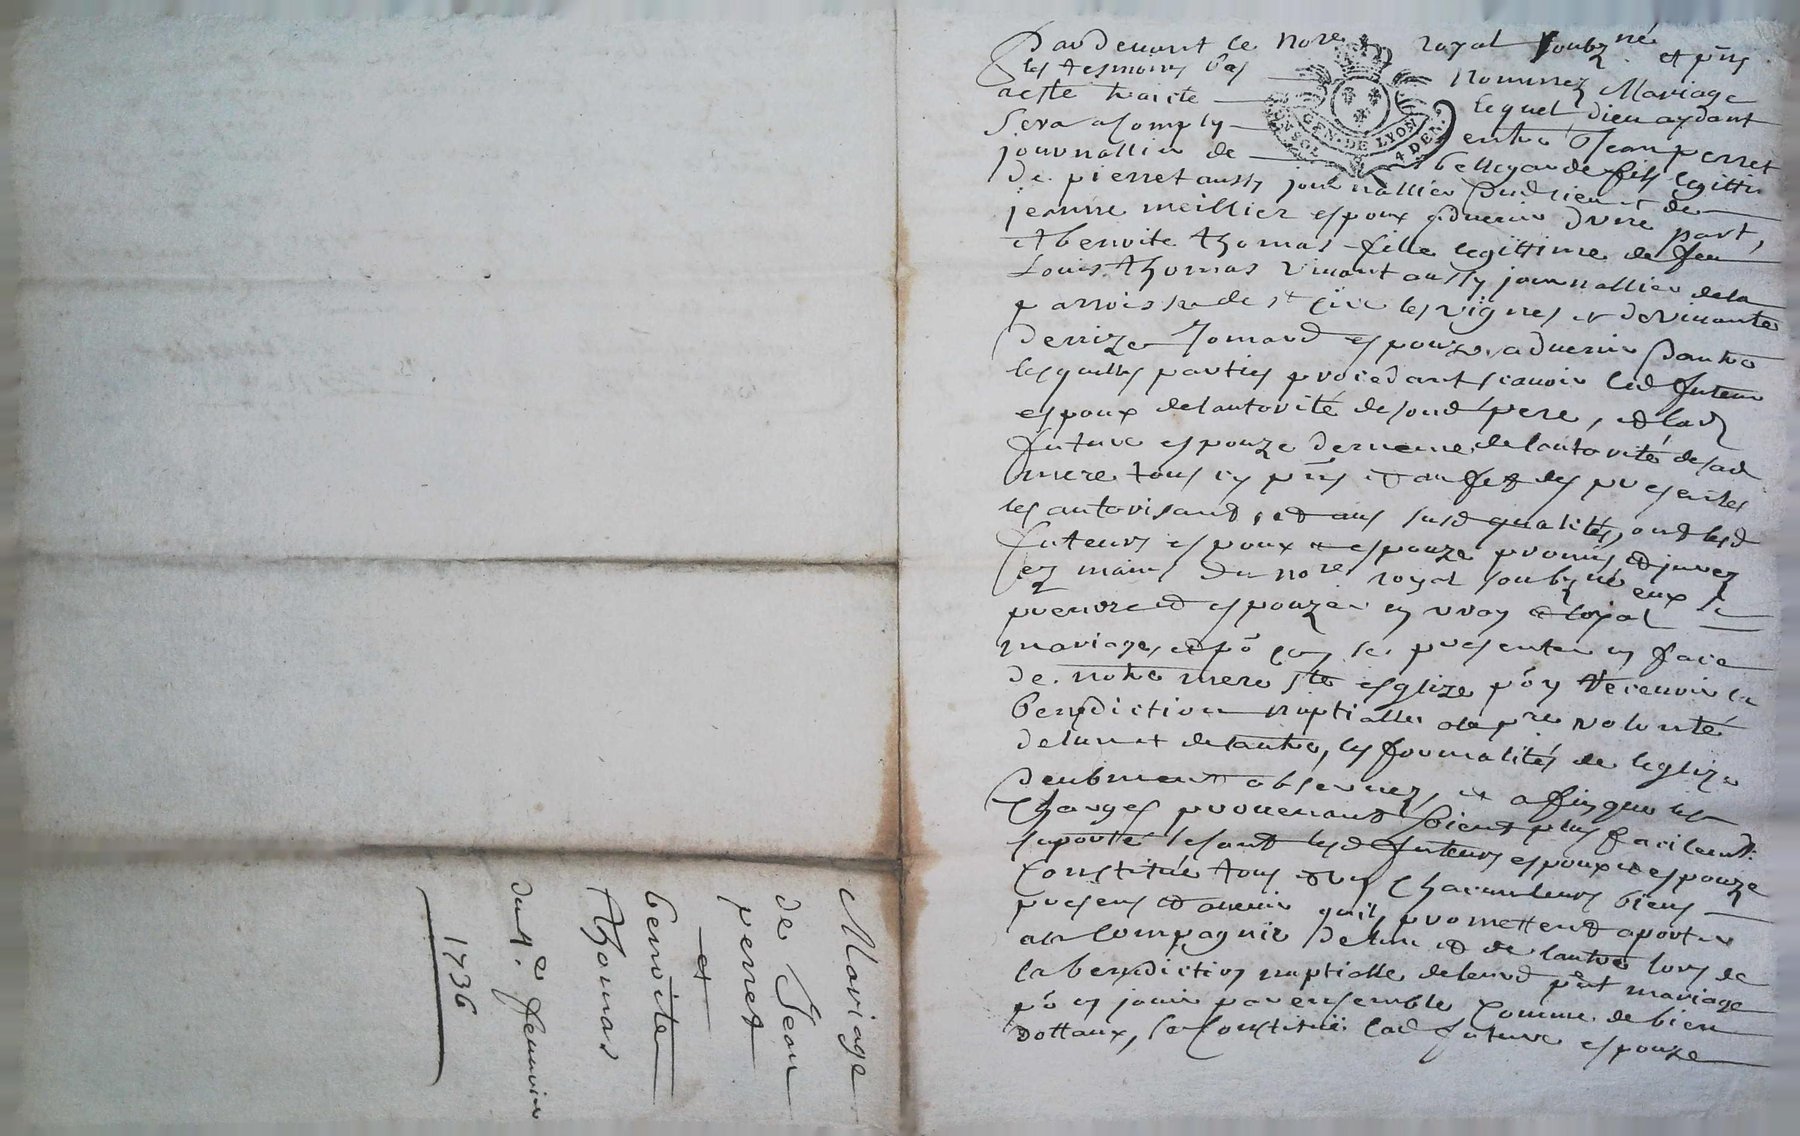 Mariage
de Jean
perret
et
benoite
Thomas
du 4.e feuvrier
1736
Pardevant le no.re royal soubz.né et pñs
les tesmoins bas nommez Mariage
a esté traicté lequel Dieu aydant
sera acomply entre Jean perret
journallier de bellegarde fils legitti
de pierret aussy journallier dudlieu et de
jeanne meillier espoux aduenir dune part,
et benoite thomas fille legittime de feu
Louis thomas viuant aussy journallier de la
parroisse de st Cire les vignes et de viuante
Denize Jomard espouze aduenir dautre
lesquelles parties procedant scauoir led futeur
espoux de lautorité de sond pere, et lad
future espouze de meme de lautorité de sad
mere tous icy pñs et au fet des presentes
les autorisant, et aux susd qualités, ont lesd
futeurs espoux et espouze promis et jurez
ez mains du no.re royal soubzné eux
prendre et espouzer en vray et loyal
mariage, et po se presenter en face
de notre mere ste esglize po y receuoir la
benediction nuptialle a la p.re volonté
de lun et de lautre, les formalités de leglize
deubment obseruez, et affin que les
charges prouenant soient plus facilemt
suporté se sont lesd futeurs espoux et espouze
constitué tous et un chacun leurs biens
presens et auenir quil promettent aporter
a la compagnie de lun et de lautre lors de
la benediction nuptialle de leurd pñt mariage
po en jouir par ensemble comme de bien
dottaux, se constitue lad future espouze
GEN. DE LYON
4 DEN.